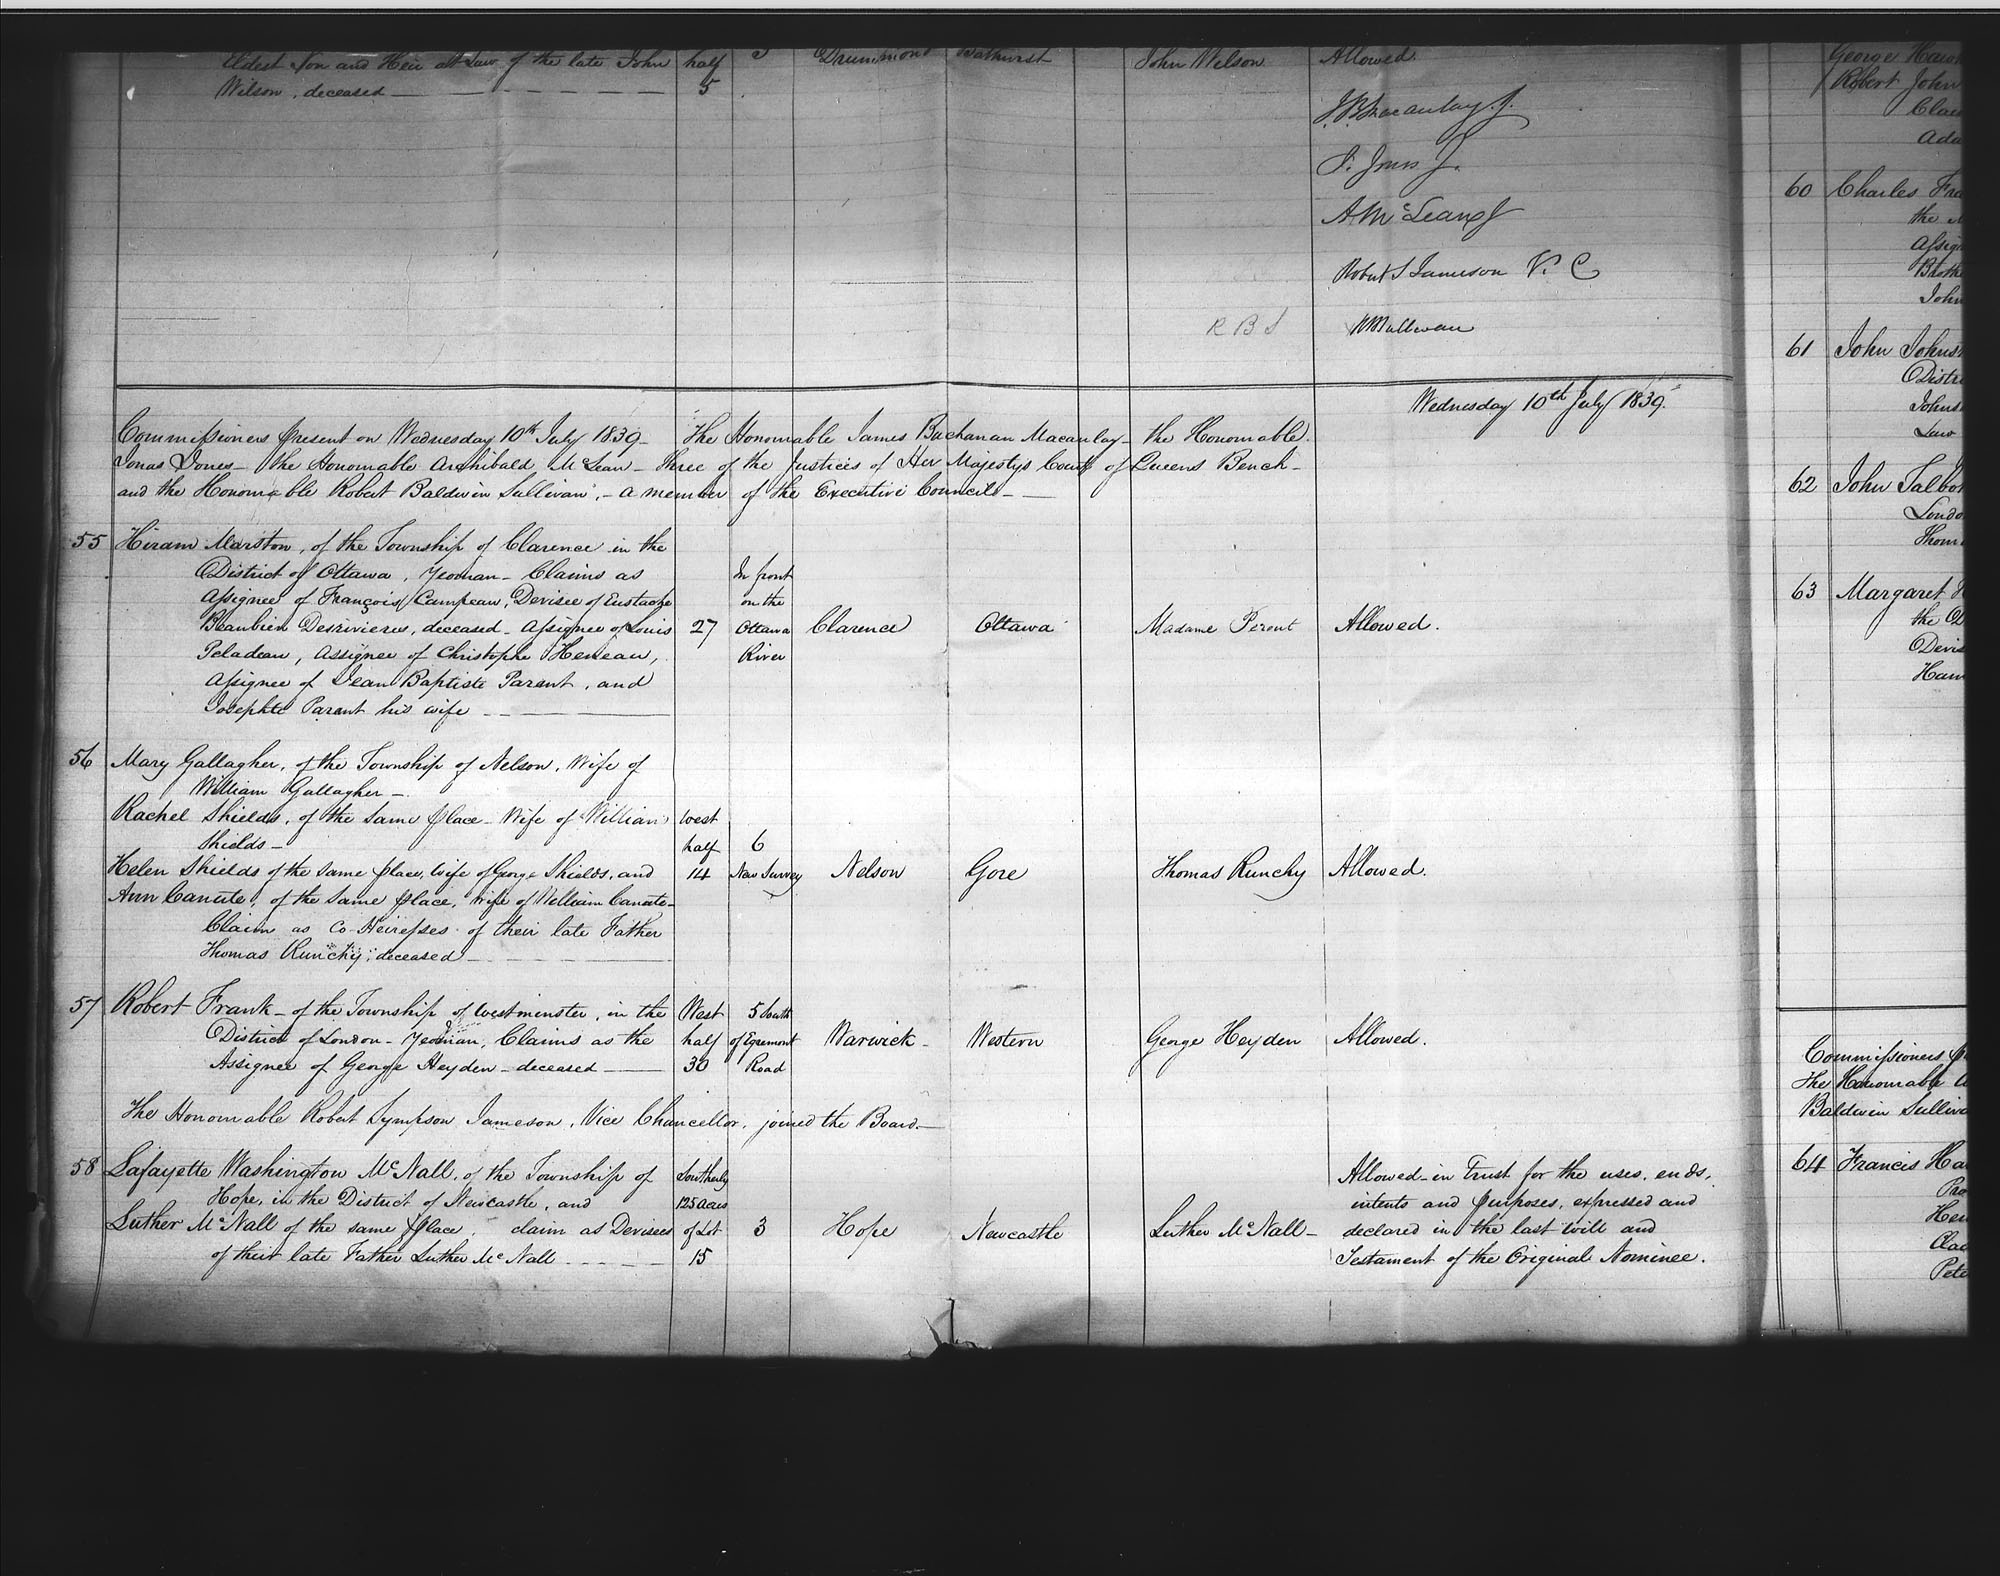 Eldest Son and Heir at Law of the late John half 3 Drummond Bathurst John Wilson Allowed.
Wilson, deceased 5
J.B. Macaulay. J.
J. Jones J.
A. McLean J
Robert S Jameson V. C
R B S RB Sullivan
Wednesday 10th July 1839.
Commissioners present on Wednesday 10th July 1839 - The Honourable James Buchanan Macaulay - the Honourable
Jonas Jones - the Honourable Archibald McLean - Three of the Justices of Her Majestys Court of Queens Bench -
and the Honourable Robert Baldwin Sullivan, - a member of the Executive Council -
55 Hiram Marston, of the Township of Clarence in the
District of Ottawa, Yeoman - Claims as In front
Assignee of François Campeau, Devisee of Eustache on the
Beaubien Desrivieres, deceased - Assignee of Louis 27 Ottawa Clarence Ottawa Madame Perent Allowed.
Peladeau, Assignee of Christophe Heneau, River
Assignee of Jean Baptiste Parent, and
Josephte Parent his wife
56 Mary Gallagher, of the Township of Nelson, Wife of
William Gallagher -
Rachel Shields, of the same place - Wife of William West
Shields - half 6
Helen Shields of the same place, wife of George Shields, and 14 New Survey Nelson Gore Thomas Runchy Allowed.
Ann Canute, of the same place, Wife of William Canute -
Claim as Co-Heiresses of their late Father
Thomas Runchy, deceased
57 Robert Frank - of the Township of Westminster, in the West 5 South
District of London - Yeoman, Claims as the half of Egremont Warwick - Western George Heyden Allowed.
Assignee of George Heyden - deceased - 30 Road
The Honourable Robert Sympson Jameson, Vice Chancellor, joined the Board. -
58 Lafayette Washington McNall, of the Township of Southerly Allowed - in Trust for the uses, ends,
Hope, in the District of Newcastle, and 125 acres intents and purposes, expressed and
Luther McNall of the same place, claim as Devisees of Lot 3 Hope Newcastle Luther McNall - declared in the last will and
of their late Father Luther McNall 15 Testament of the Original Nominee.
George
Robert John
60 Charles
the
John
61 John
62 John Talbot
63 Margaret
the
Commissioners
The Honourable
Baldwin
64 Francis